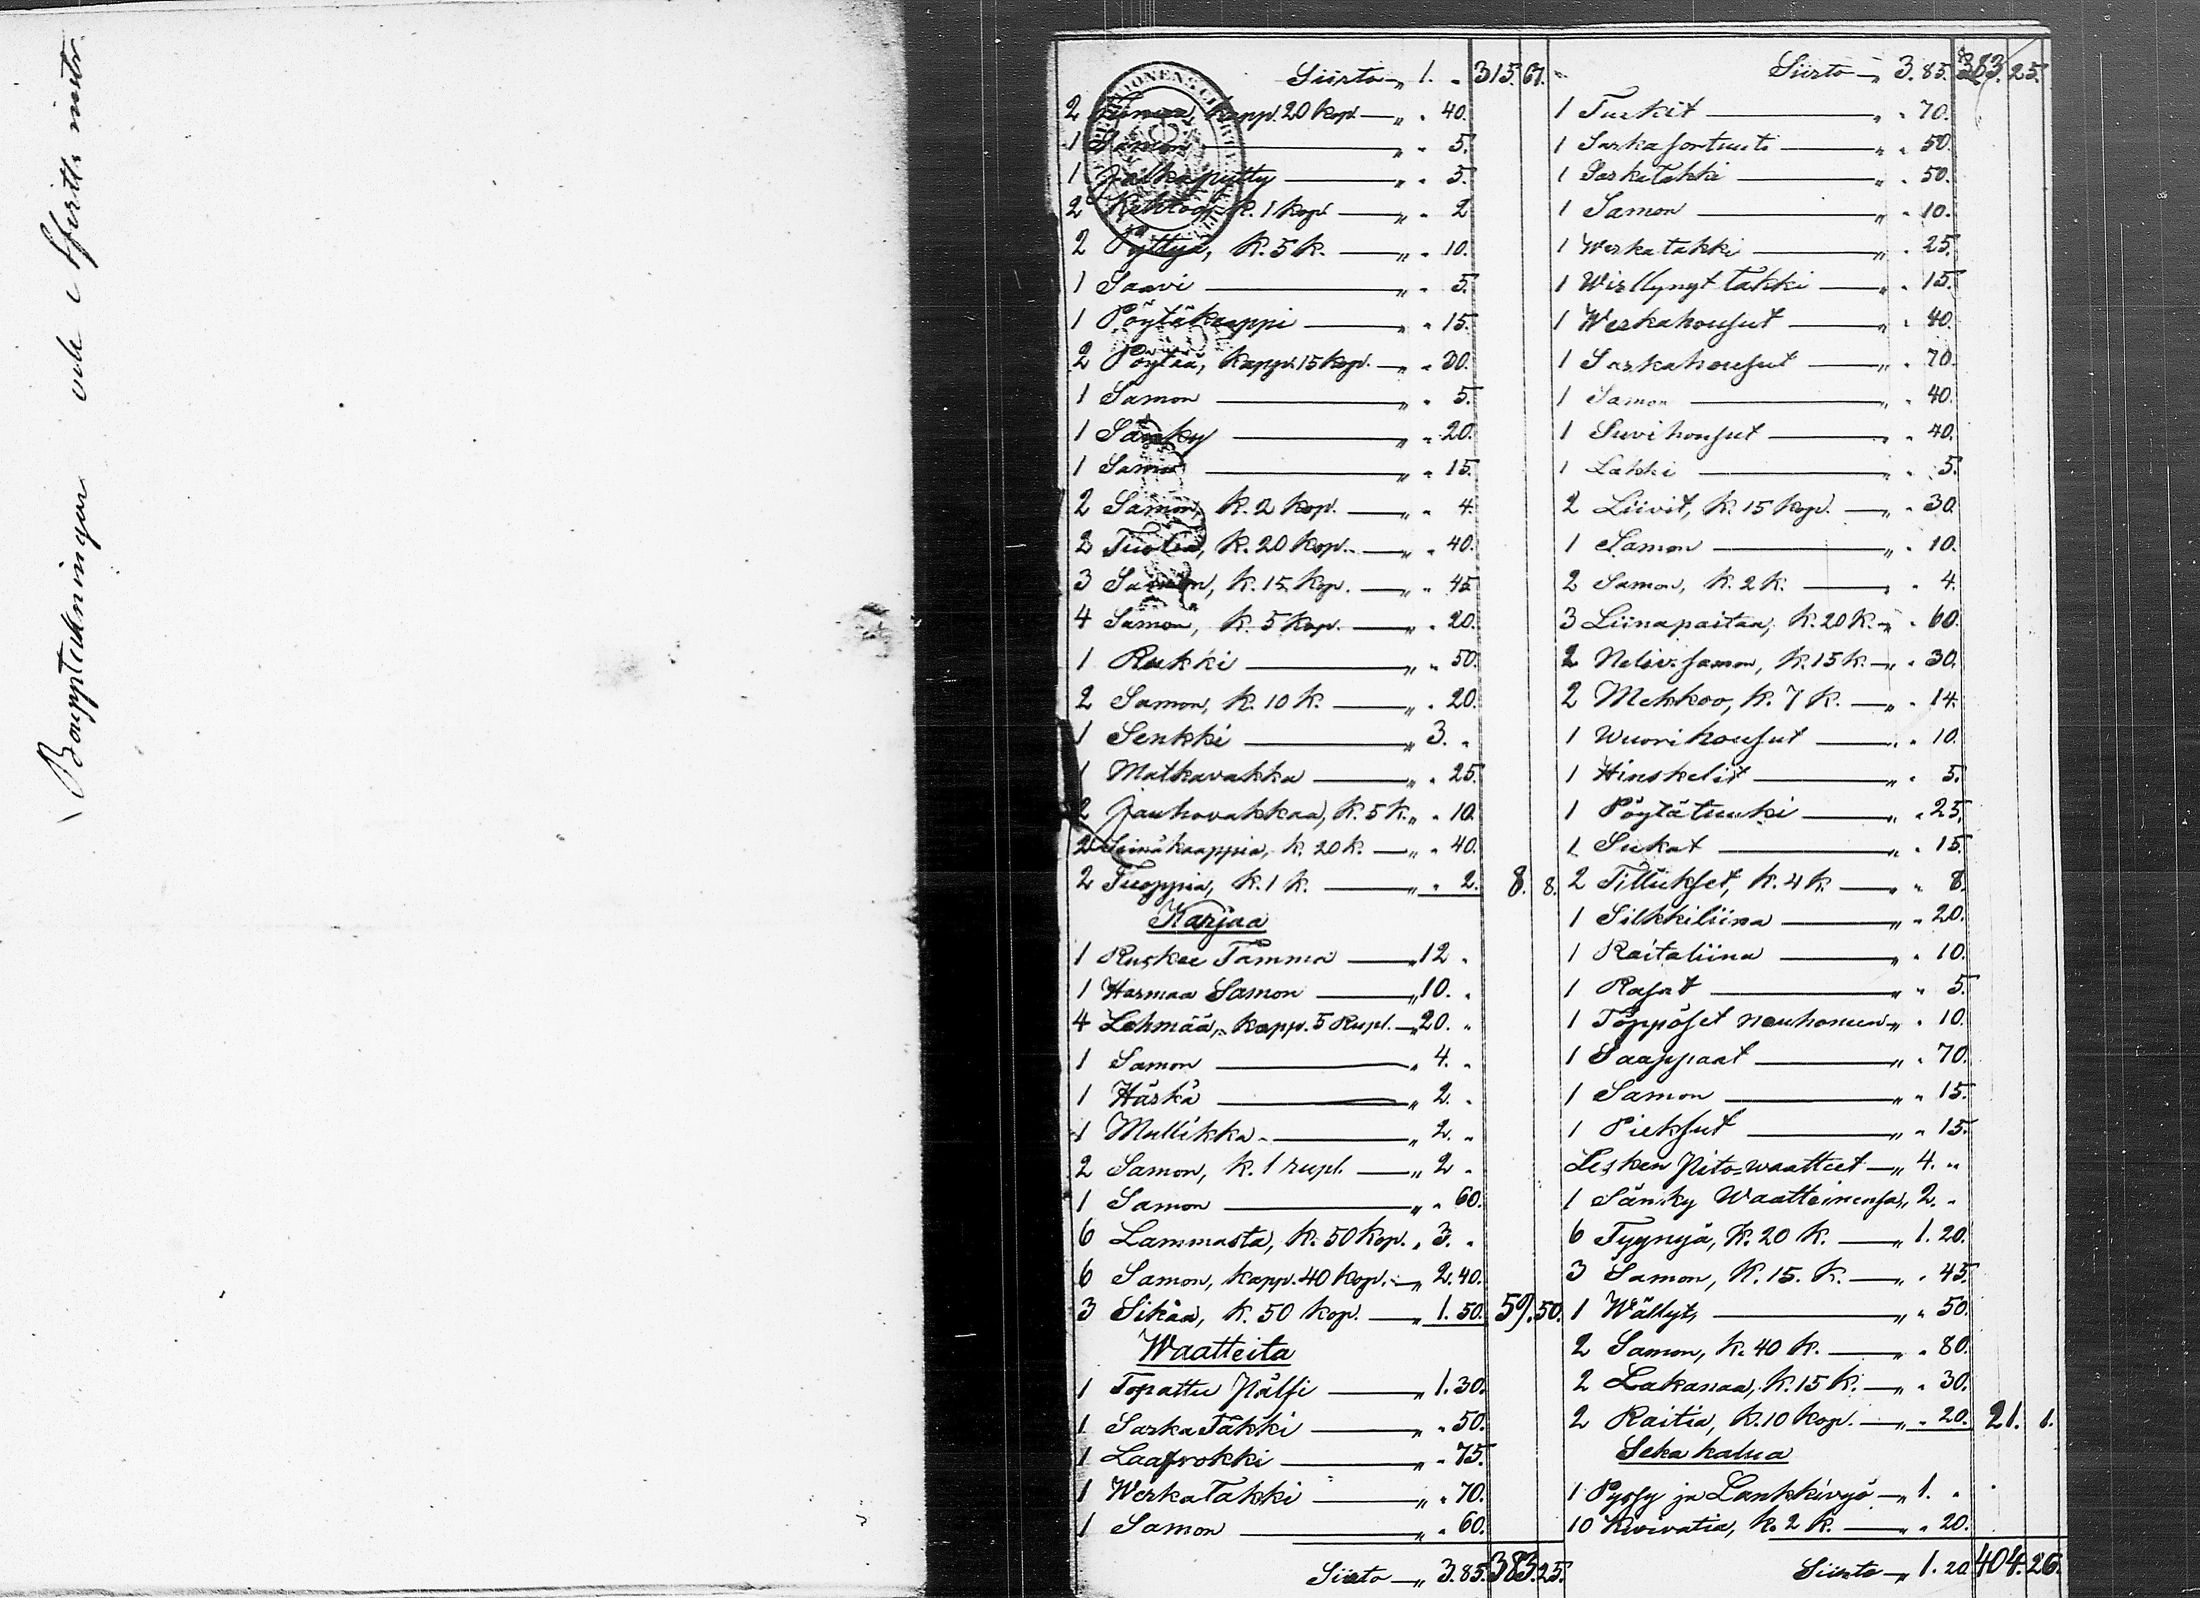 Bouppteckningar
Siirto „ 1. „ 315. 67.
2 kapp. 20 kop. — „ „ 40.
1 Samon — „ „ 5.
1 Jalkapytty — „ „ 5.
2 k. 1 kop. — „ „ 2
2 Pyttyä, k. 5 k. — „ „ 10.
1 Saavi — „ „ 5.
1 Pöytäkaappi — „ „ 15.
2 Pöytää, kapp. 15 kop. — „ „ 30.
1 Samon — „ „ 5.
1 Sänky — „ „ 20.
1 Samon — „ „ 15.
2 Samon, k. 2 kop. — „ „ 4.
2 Tuolia, k. 20 kop. — „ „ 40.
3 Samon, k. 15 kop. — „ „ 45
4 Samon, k. 5 kop. — „ „ 20.
1 Rukki — „ „ 50.
2 Samon, k. 10 k. — „ „ 20.
1 Senkki — „ 3. „
1 Matkavakka — „ „ 25.
2 Jauhovakkaa, k. 5 k. „ „ 10.
2 Seinäkaappia, k. 20 k. — „ „ 40.
2 Tuoppia, k. 1 k. — „ „ 2. 8. 8.
Karjaa
1 Ruskee Tamma — „ 12 „
1 Harmaa Samon — „ 10. „
4 Lehmää, kapp. 5 Rupl. — „ 20. „
1 Samon — „ 4. „
1 Härkä — „ 2. „
1 Mullikka — „ 2. „
2 Samon, k. 1 rupl. — „ 2 „
1 Samon — „ „ 60.
6 Lammasta, k. 50 kop. „ 3. „
6 Samon, kapp. 40 kop. — „ 2. 40.
3 Sikaa, k. 50 kop. — „ 1. 50. 59. 50.
Waatteita
1 Topattu Pälsi — „ 1. 30.
1 Sarka Takki — „ „ 50.
1 Laafrokki — „ „ 75.
1 Werka Takki — „ „ 70.
1 Samon — „ „ 60.
Siirto — „ 3. 85. 383. 25.
Siirto — „ 3. 85. 383. 25.
1 Turkit — „ „ 70.
1 Sarkasortuuti — „ „ 50.
1 Sarkatakki — „ „ 50.
1 Samon — „ „ 10.
1 Werkatakki — „ „ 25.
1 Wirllynyt takki — „ „ 15.
1 Werkahousut — „ „ 40.
1 Sarkahousut — „ „ 70.
1 Samon — „ „ 40.
1 Suvihousut — „ „ 40.
1 Lakki — „ „ 5.
2 Liivit, k. 15 kop. — „ „ 30.
1 Samon — „ „ 10.
2 Samon, k. 2 k. — „ „ 4.
3 Liinapaitaa, k. 20 k. — „ „ 60.
2 samon, k. 15 k. — „ „ 30.
2 Mekkoo, k. 7 k. — „ „ 14.
1 Wuorihousut — „ „ 10.
1 Hinskelit — „ „ 5.
1 Pöytätuuki — „ „ 25.
1 Sukat — „ „ 15.
2 k. 4 k. — „ „ 8.
1 Silkkiliina — „ „ 20.
1 Raitaliina — „ „ 10.
1 Rasat — „ „ 5.
1 Töppöset — „ „ 10.
1 Saappaat — „ „ 70.
1 Samon — „ „ 15.
1 Pieksut — „ „ 15.
Lesken Pito-waatteet — „ 4. „
1 Sänky Waatteinensa „ 2. „
6 Tyynyä, k. 20 k. — „ 1. 20.
3 Samon, k. 15. k. — „ „ 45.
1 Wällyt — „ „ 50.
2 Samon, k. 40 k. — „ „ 80.
2 Lakanaa, k. 15 k. — „ „ 30.
2 Raitia, k. 10 kop. — „ „ 20. 21. 1.
Seka kalua
1 Pyssy ja Lankkivyö — „ 1. „
10 Kivivatia, k. 2 k. — „ „ 20.
Siirto — „ 1. 20 404. 26.